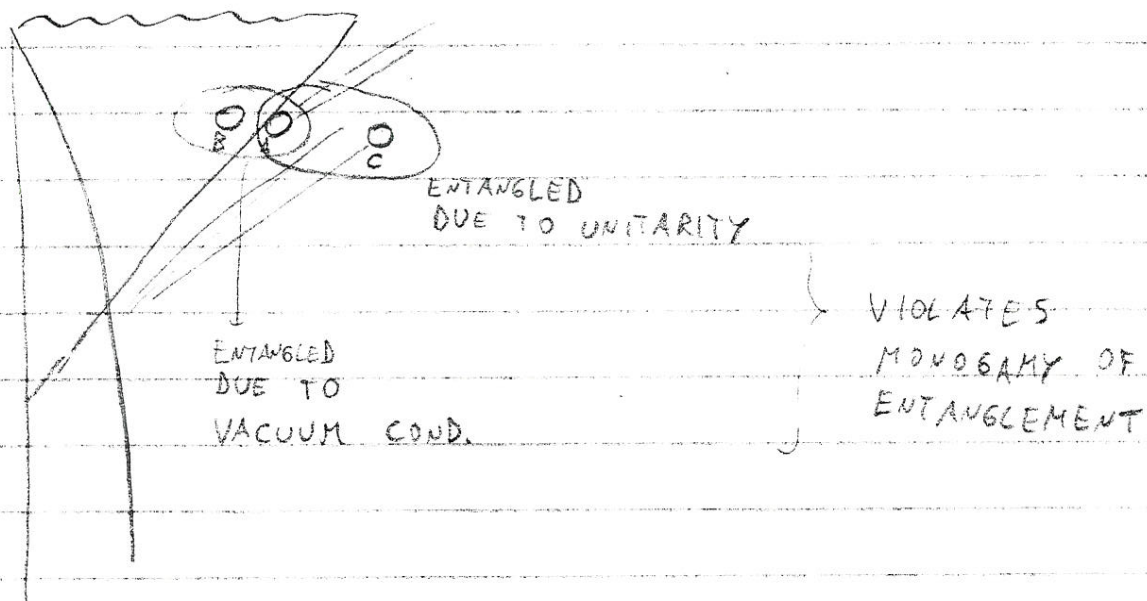 B A C
ENTANGLED
DUE TO UNITARITY
ENTANGLED
DUE TO
VACUUM COND.
VIOLATES
MONOGAMY OF
ENTANGLEMENT